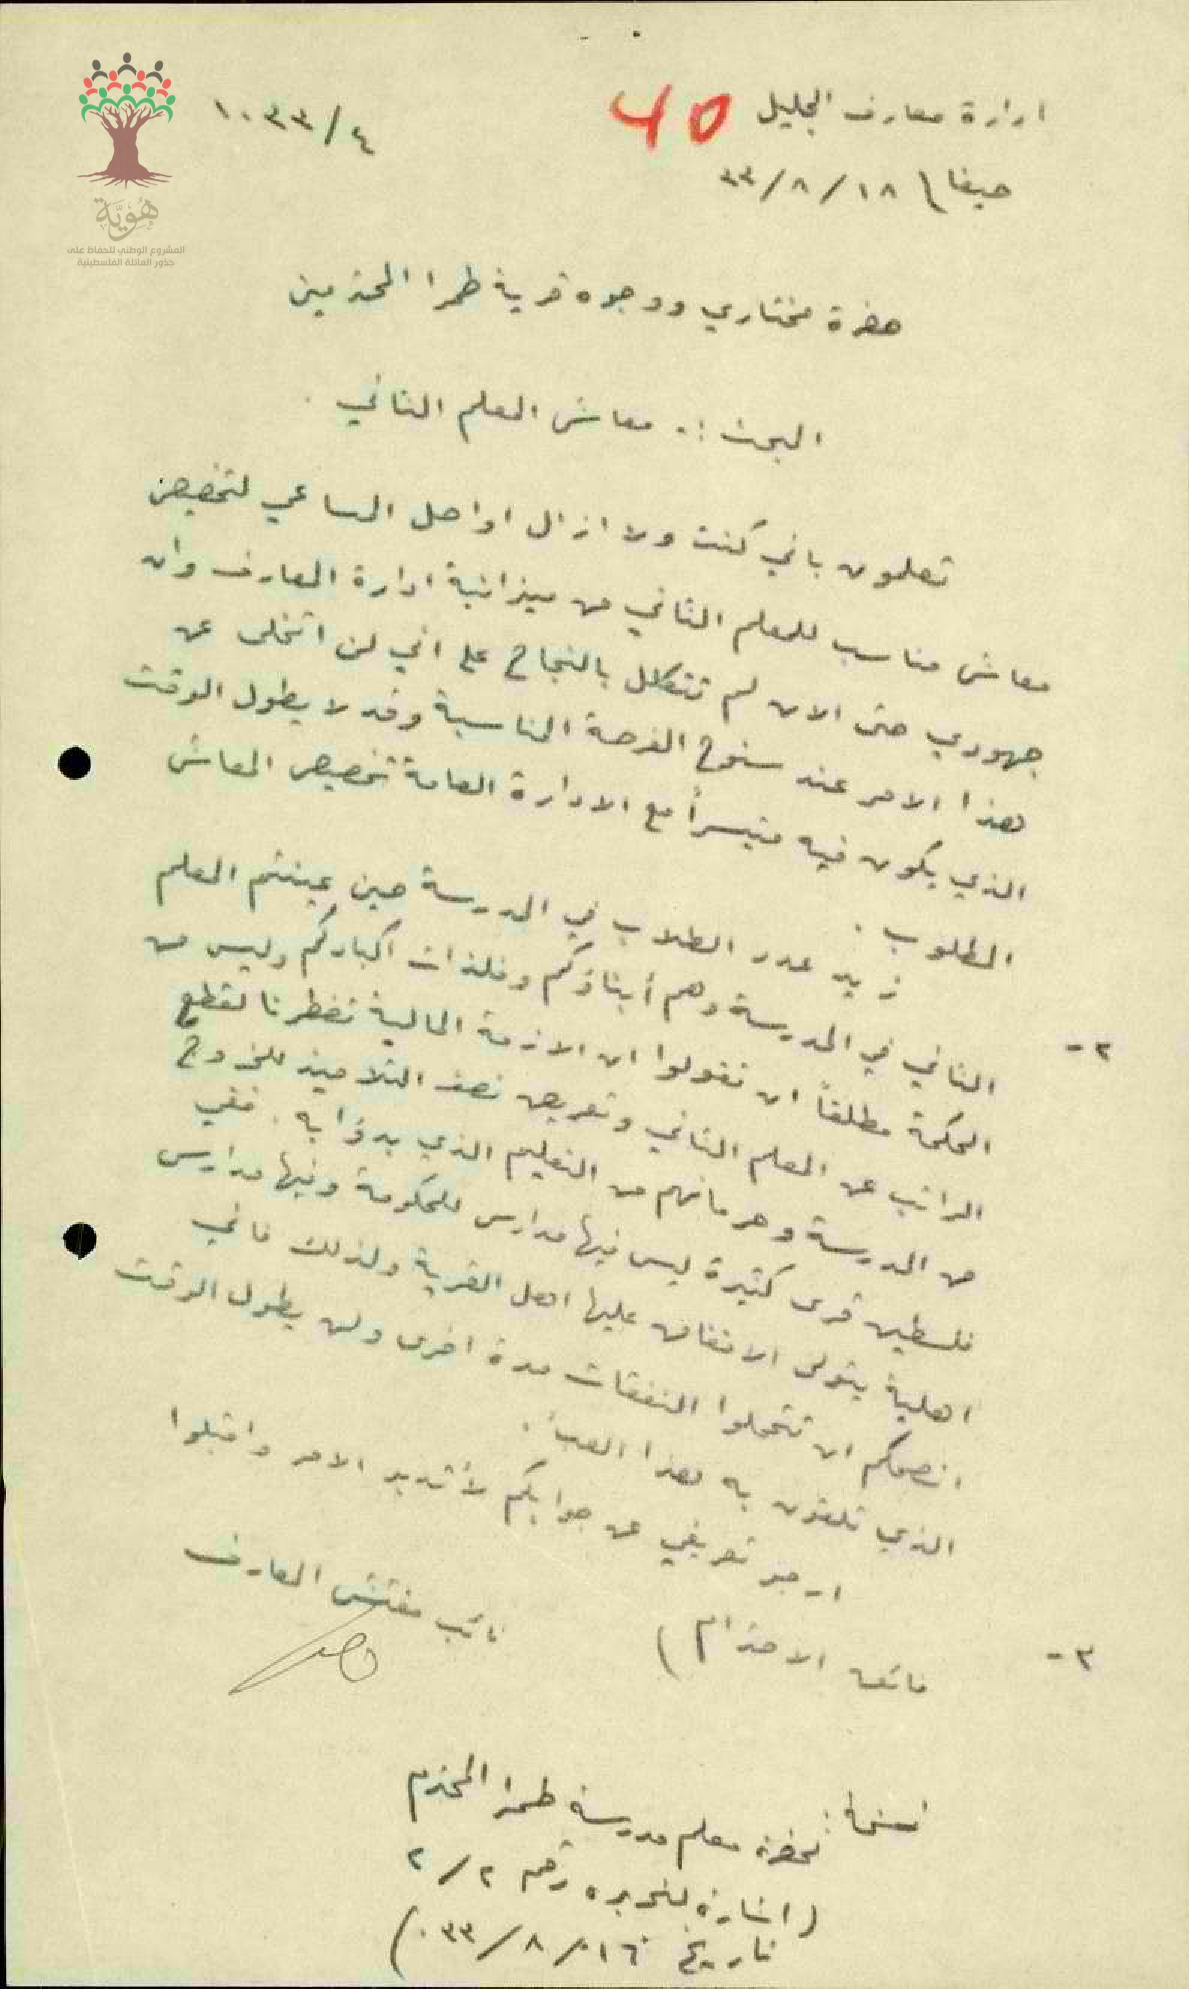 ادارة معارف الجليل
40
١٠٣٣/٤
حيفا ١٨/٨/٣٣
هُوِيَّة
المشروع الوطني للحفاظ على
جذور العائلة الفلسطينية
حضرة مختاري ووجوه قرية طمرا المحترمين
البحث :. معاش المعلم الثاني .
تعلمون باني كنت ولا ازال اواصل المساعي لتخصيص
معاش مناسب للمعلم الثاني من ميزانية ادارة المعارف وان
جهودي حتى الان لم تتكلل بالنجاح على اني لن اتخلى عن
هذا الامر عند سنوح الفرصة المناسبة وقد لا يطول الوقت
الذي يكون فيه متيسراً مع الادارة العامة تخصيص المعاش
المطلوب .
٢- زيد عدد الطلاب في المدرسة حين عينتم المعلم
الثاني في المدرسة وهم أبناؤكم وفلذات اكبادكم وليس من
الحكمة مطلقاً ان تقولوا ان الازمة المالية تضطرنا لقطع
الراتب عن المعلم الثاني وتعريض نصف التلاميذ للخروج
من المدرسة وحرمانهم من التعليم الذي بدؤا به . ففي
فلسطين قرى كثيرة ليس فيها مدارس للحكومة وفيها مدارس
اهلية يتولى الانفاق عليها اهل القرية ولذلك فاني
انصحكم ان تتحملوا النفقات مدة اخرى ولن يطول الوقت
الذي تلقون به هذا العبء .
٣- ارجو تعريفي عن جوابكم لأتدبر الامر واقبلوا
فائق الاحترام )
نائب مفتش المعارف
نسخة : لحضرة معلم مدرسة طمرا المحترم
( اشارة لتحريره رقم ٢/٢
تاريخ ١٦/٨/٣٣ . )